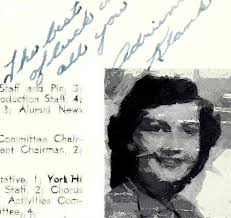 The best
of luck in
all you
Adrienne
Klams
Staff and Pin 3;
roduction Staff 4;
3; Alumni News
Committee Chair-
ent Chairman, 2;
tative, 1; York-Hi
Staff, 2; Chorus
Activities Com-
ittee, 4.